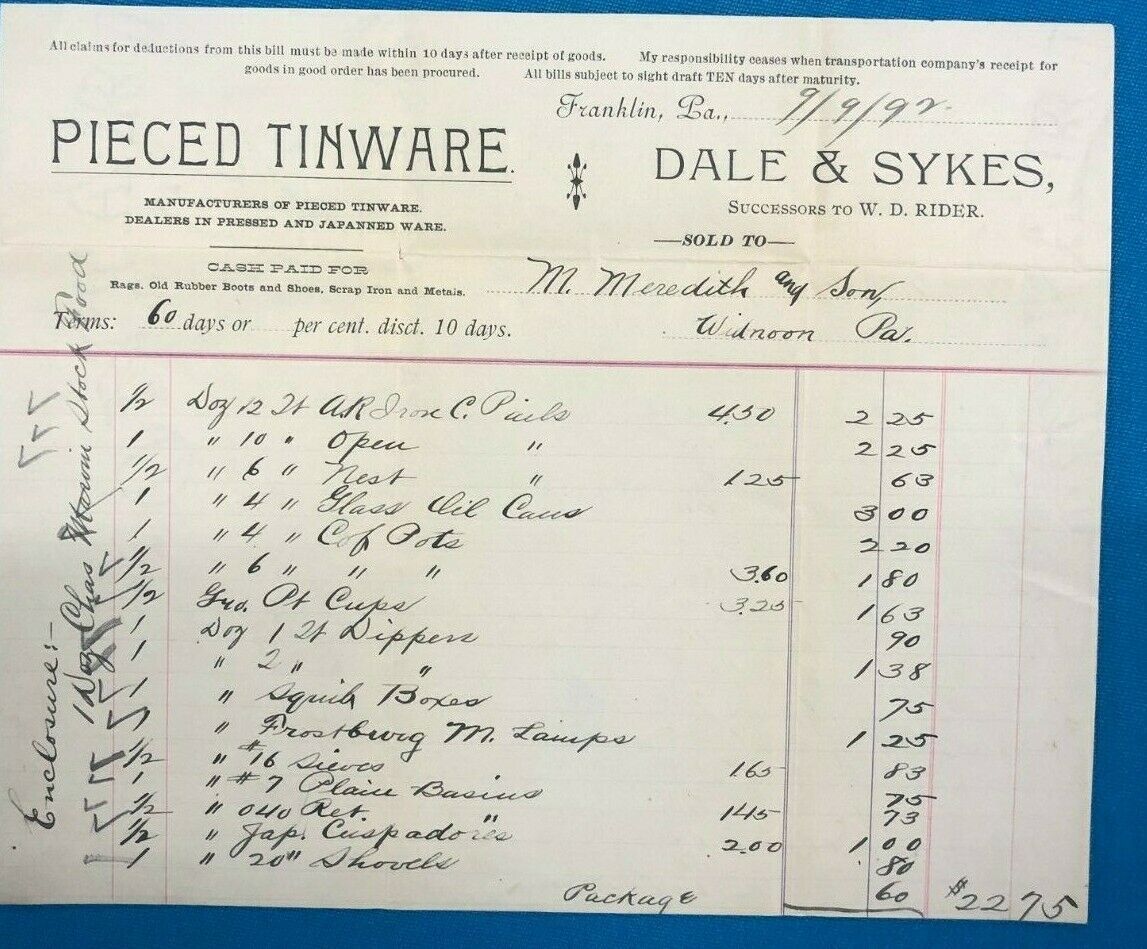 All claims for deductions from this bill must be made within 10 days after receipt of goods. My responsibility ceases when transportation company's receipt for
goods in good order has been procured. All bills subject to sight draft TEN days after maturity.
Franklin, Pa., 9/9/92.
PIECED TINWARE.
DALE & SYKES,
MANUFACTURERS OF PIECED TINWARE.
DEALERS IN PRESSED AND JAPANNED WARE.
SUCCESSORS TO W. D. RIDER.
—SOLD TO—
CASH PAID FOR
Rags, Old Rubber Boots and Shoes, Scrap Iron and Metals.
M. Meredith and Son,
Terms: 60 days or per cent. disct. 10 days.
Widnoon Pa.
1/2 Doz 12 Qt A.R. Iron C. Pails 4.50 2 25
1 " 10 " Open " 2 25
1/2 " 6 " Nest " 125 63
1 " 4 " Glass Oil Cans 3 00
1 " 4 " Cof Pots 2 20
1/2 " 6 " " " 3.60 1 80
1/2 Gro. Pt Cups 3.25 1 63
1 Doz 1 Qt Dippers 90
1 " 2 " " 1 38
1 " Squib Boxes 75
1 " Frostburg M. Lamps 1 25
1/2 " #16 Sieves 165 83
1 " #7 Plain Basins 75
1/2 " 040 Ret. " 145 73
1/2 " Jap. Cuspadores 2.00 1 00
1 " 20" Shovels 80
Package 60 $22 75
Enclosure:-
1 Doz Chas Stock Food